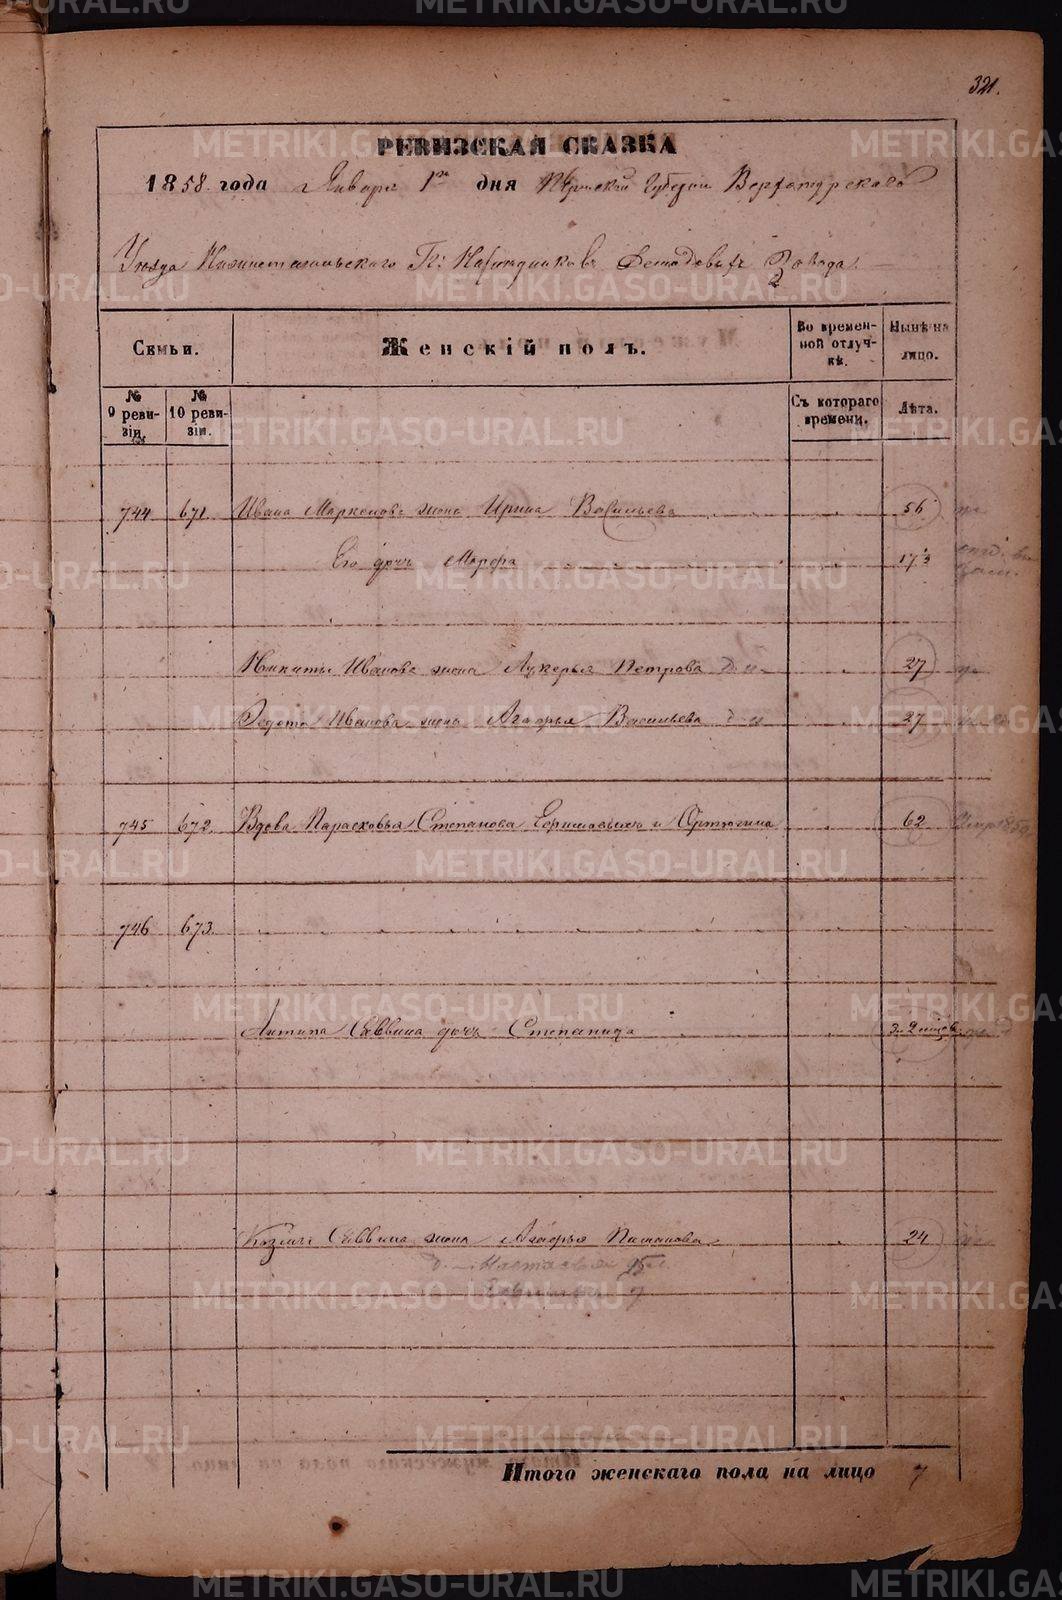 321.
РЕВИЗСКАЯ СКАЗКА
1858 года Января 1го дня Пермской Губернiи Верхотурскаго
Уѣзда Нижнетагильскаго Гг: Наслѣдниковъ Демидовыхъ Завода.
Семьи.
Женскiй полъ.
Во времен-
ной отлуч-
кѣ.
Нынѣ на
лицо.
№
9 реви-
зiи.
№
10 реви-
зiи.
Съ котораго
времени.
Лѣта.
744 671 Ивана Маркелова жена Ирина Васильева 56
Его дочь Марфа 17
Никиты Иванова жена Лукерья Петрова 27
Федота Иванова жена Агафья Васильева 27
745 672. Вдова Парасковья Степанова 62
746 673.
Антипа Саввина дочь Степанида
Козмы Саввина жена Агафья 24
Настасья
7
Итого женскаго пола на лицо 7
METRIKI.GASO-URAL.RU